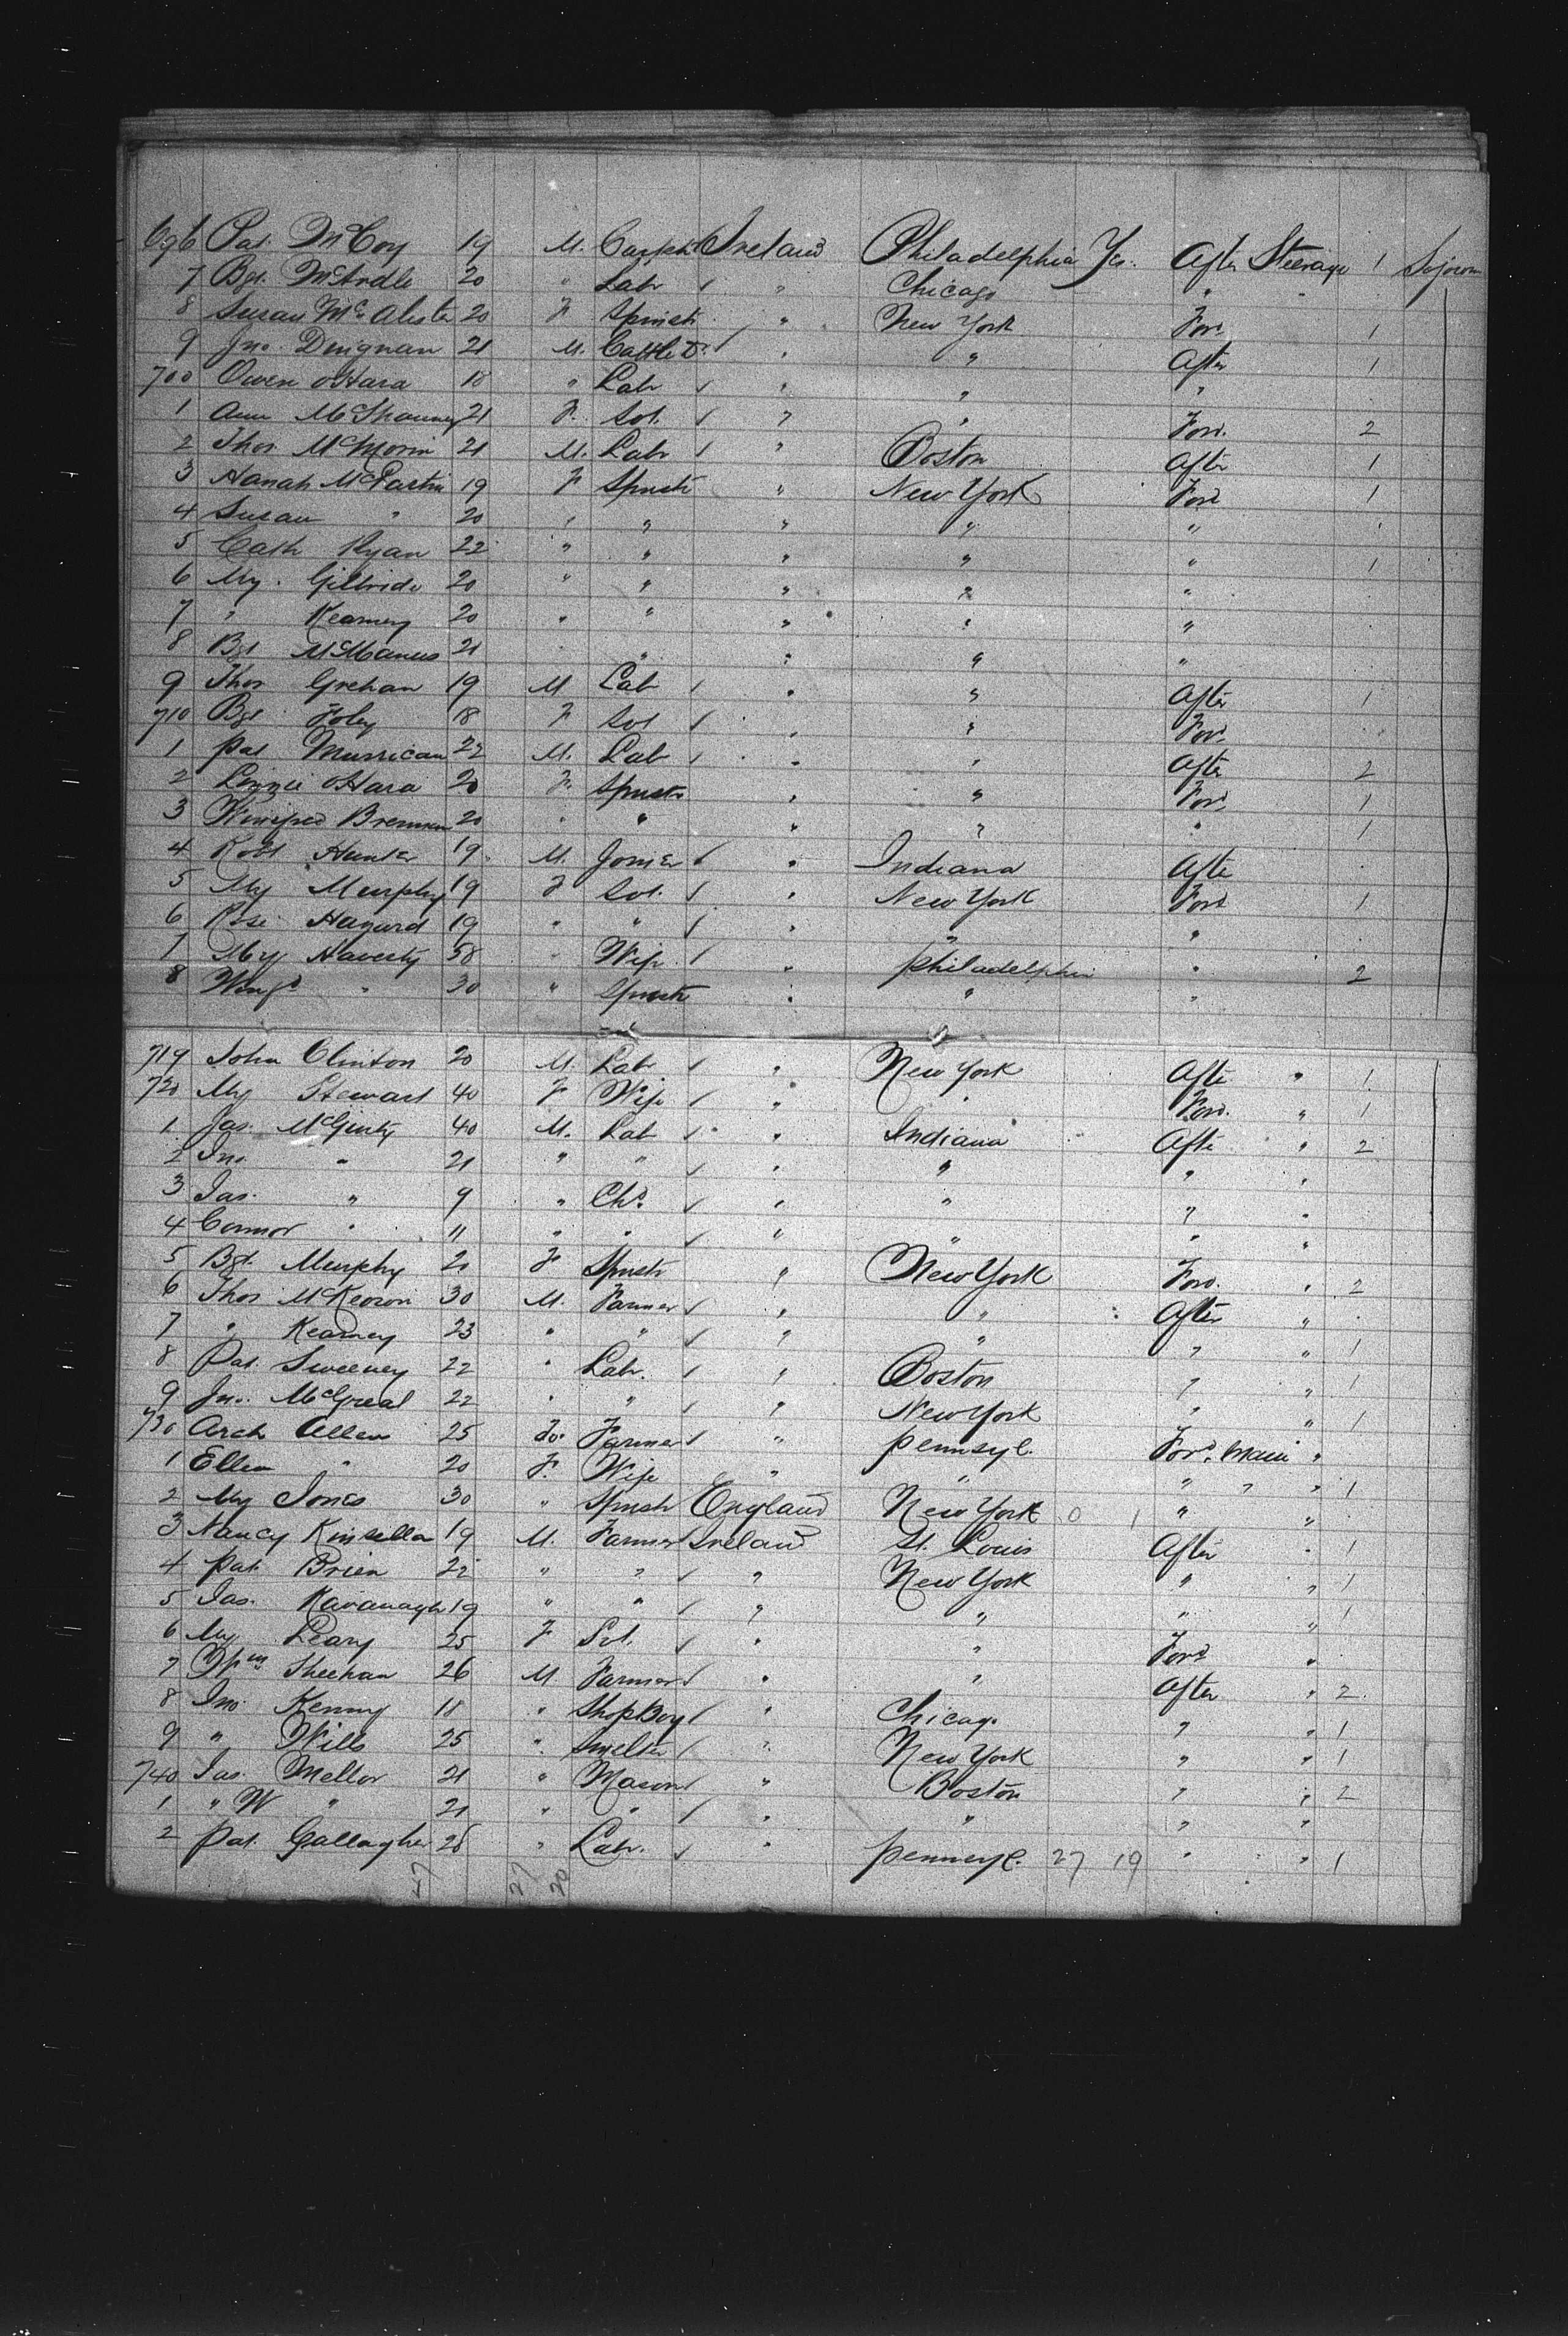 696 Pat. McCoy 19 M. Carptr Ireland Philadelphia Yes. After Steerage 1 Sojourn
7 Bgt. McArdle 20 " Labr " Chicago "
8 Susan McAlister 20 F Spinstr " New York Ford 1
9 Jno. Duignan 21 M. Cattle D. " " After 1
700 Owen OHara 18 " Labr " " "
1 Ann McShanney 21 F. Svt. " " Ford. 2
2 Thos. McMorin 21 M. Labr " Boston After 1
3 Hanah McPartin 19 F Spnstr " New York Ford 1
4 Susan " 20 " " " " "
5 Cath Ryan 22 " " " " " 1
6 My. Gilbride 20 " " " " "
7 " Kearney 20 " " " " "
8 Bgt McManus 21 " " " " "
9 Thos Grehan 19 M Lab " " After 1
710 Bgt Foley 18 F Svt " " Ford
1 Pat Murrican 22 M. Lab " " After 2
2 Lizzie OHara 20 F. Spnstr " " Ford 1
3 Winifred Brennan 20 " " " " " 1
4 Robt Hunter 19 M. Joiner " Indiana After
5 My Murphy 19 F Svt. " New York Ford 1
6 Rose Hagard 19 " " " " "
7 My Haverty 58 " Wife " Philadelphia " 2
8 Wingd " 30 " Spnstr " " "
719 John Clinton 20 M. Labr " New York After " 1
720 My Stewart 40 F Wife " " Ford. " 1
1 Jas. McGinty 40 M. Lab " Indiana After " 2
2 Jno. " 21 " " " " " "
3 Jas. " 9 " Chd " " " "
4 Connor " 11 " " " " " "
5 Bgt. Murphy 21 F Spnstr " New York Ford. " 2
6 Thos McKeown 30 M. Farmer " " After "
7 " Kearney 23 " " " " " " 1
8 Pat. Sweeney 22 " Labr. " Boston " " 1
9 Jno. McGreal 22 " " " New York " " 1
730 Arch Allen 25 Do. Farmer " Pennsyl. Ford. Main "
1 Ellen " 20 F. Wife " " " " 1
2 My Jones 30 " Spnstr England New York 0 1 " "
3 Nancy Kinsella 19 M. Farmer Ireland St. Louis After " 1
4 Pat. Brien 22 " " " New York " " 1
5 Jas. Kavanagh 19 " " " " " " 1
6 My Leary 25 F Svt. " " Ford "
7 Wm Sheehan 26 M Farmer " " After " 2
8 Jno Kenny 18 " Shop Boy " Chicago " " 1
9 " Wills 25 " Smelter " New York " " 1
740 Jas. Mellor 21 " Mason " Boston " " 2
1 " W " 21 " " " " " "
2 Pat. Gallagher 28 " Labr. " Pennsyl. 27 19 " " 1
27 20